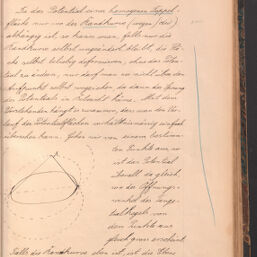 Da das Potential einer homogenen Doppel-
fläche nur von der Randkurve (wegen (des)
abhängig ist so kann man, falls nur die
Randkurve selbst ungeändert bleibt, die Flä-
che selbst beliebig deformieren, ohne das Poten-
tial zu ändern, nur darf man es nicht über den
Aufpunkt selbst wegziehen, da dann der Sprung
des Potentials in Betracht käme. Mit dem
Vorstehenden hängt es zusammen, dass man den Ver-
lauf der Potentialflächen verhältnismässig einfach
übersehen kann. Gehen wir von einem bestimm-
ten Punkte aus, so
ist das Potential
überall da gleich,
wo der Öffnungs-
winkel des
Kegels von
dem Punkte aus
gleich gross erscheint.
Falls die Randkurve eben ist, ist die Ebene